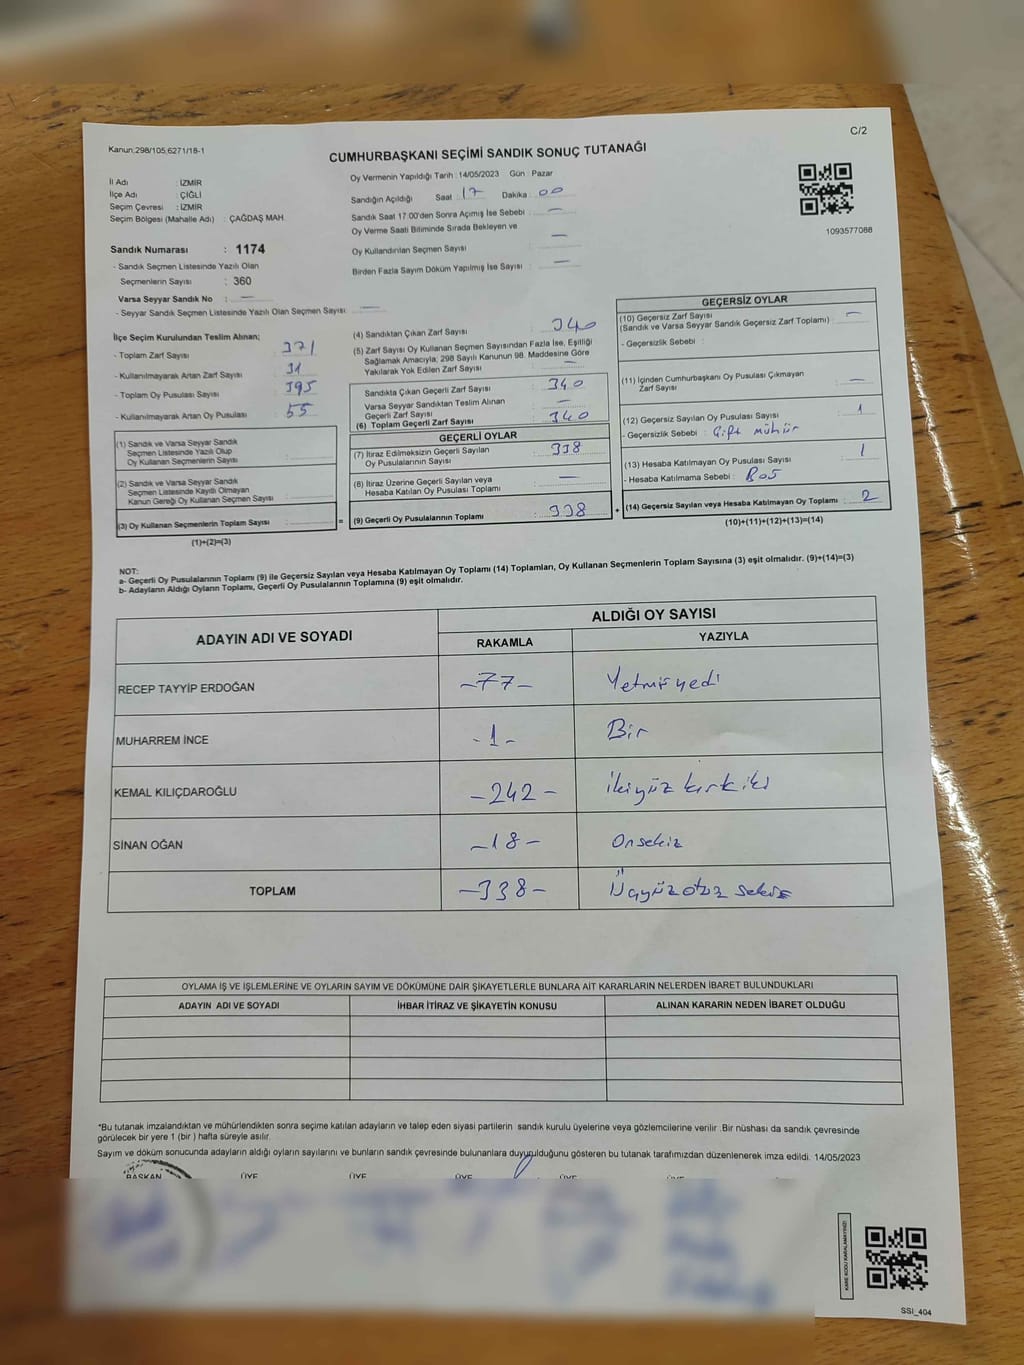 C/2
Kanun;298/105,6271/18-1
CUMHURBAŞKANI SEÇİMİ SANDIK SONUÇ TUTANAĞI
İl Adı : İZMİR
İlçe Adı : ÇİĞLİ
Seçim Çevresi : İZMİR
Seçim Bölgesi (Mahalle Adı) : ÇAĞDAŞ MAH.
Oy Vermenin Yapıldığı Tarih : 14/05/2023 Gün : Pazar
Sandığın Açıldığı Saat : 17 Dakika : 00
Sandık Saat 17.00'den Sonra Açımış İse Sebebi : —
Oy Verme Saati Bitiminde Sırada Bekleyen ve
Oy Kullandırılan Seçmen Sayısı : —
Birden Fazla Sayım Döküm Yapılmış İse Sayısı : —
1093577088
Sandık Numarası : 1174
- Sandık Seçmen Listesinde Yazılı Olan
Seçmenlerin Sayısı : 360
Varsa Seyyar Sandık No : —
- Seyyar Sandık Seçmen Listesinde Yazılı Olan Seçmen Sayısı: —
İlçe Seçim Kurulundan Teslim Alınan;
- Toplam Zarf Sayısı : 371
- Kullanılmayarak Artan Zarf Sayısı : 31
- Toplam Oy Pusulası Sayısı : 395
- Kullanılmayarak Artan Oy Pusulası : 55
(1) Sandık ve Varsa Seyyar Sandık
Seçmen Listesinde Yazılı Olup
Oy Kullanan Seçmenlerin Sayısı :
(2) Sandık ve Varsa Seyyar Sandık
Seçmen Listesinde Kaydı Olmayan
Kanun Gereği Oy Kullanan Seçmen Sayısı :
(3) Oy Kullanan Seçmenlerin Toplam Sayısı : =
(1)+(2)=(3)
(4) Sandıktan Çıkan Zarf Sayısı : 340
(5) Zarf Sayısı Oy Kullanan Seçmen Sayısından Fazla İse, Eşitliği
Sağlamak Amacıyla; 298 Sayılı Kanunun 98. Maddesine Göre
Yakılarak Yok Edilen Zarf Sayısı : —
Sandıkta Çıkan Geçerli Zarf Sayısı : 340
Varsa Seyyar Sandıktan Teslim Alınan
Geçerli Zarf Sayısı : —
(6) Toplam Geçerli Zarf Sayısı : 340
GEÇERLİ OYLAR
(7) İtiraz Edilmeksizin Geçerli Sayılan
Oy Pusulalarının Sayısı : 338
(8) İtiraz Üzerine Geçerli Sayılan veya
Hesaba Katılan Oy Pusulası Toplamı : —
(9) Geçerli Oy Pusulalarının Toplamı : 338 +
GEÇERSİZ OYLAR
(10) Geçersiz Zarf Sayısı : —
(Sandık ve Varsa Seyyar Sandık Geçersiz Zarf Toplamı)
- Geçersizlik Sebebi :
(11) İçinden Cumhurbaşkanı Oy Pusulası Çıkmayan
Zarf Sayısı : —
(12) Geçersiz Sayılan Oy Pusulası Sayısı : 1
- Geçersizlik Sebebi : Çift mühür
(13) Hesaba Katılmayan Oy Pusulası Sayısı : 1
- Hesaba Katılmama Sebebi : Boş
(14) Geçersiz Sayılan veya Hesaba Katılmayan Oy Toplamı : 2
(10)+(11)+(12)+(13)=(14)
NOT:
a- Geçerli Oy Pusulalarının Toplamı (9) ile Geçersiz Sayılan veya Hesaba Katılmayan Oy Toplamı (14) Toplamları, Oy Kullanan Seçmenlerin Toplam Sayısına (3) eşit olmalıdır. (9)+(14)=(3)
b- Adayların Aldığı Oyların Toplamı, Geçerli Oy Pusulalarının Toplamına (9) eşit olmalıdır.
ADAYIN ADI VE SOYADI ALDIĞI OY SAYISI
RAKAMLA YAZIYLA
RECEP TAYYİP ERDOĞAN -77- Yetmişyedi
MUHARREM İNCE -1- Bir
KEMAL KILIÇDAROĞLU -242- ikiyüz kırkiki
SİNAN OĞAN -18- Onsekiz
TOPLAM -338- Üçyüzotuz sekiz
OYLAMA İŞ VE İŞLEMLERİNE VE OYLARIN SAYIM VE DÖKÜMÜNE DAİR ŞİKAYETLERLE BUNLARA AİT KARARLARIN NELERDEN İBARET BULUNDUKLARI
ADAYIN ADI VE SOYADI İHBAR İTİRAZ VE ŞİKAYETİN KONUSU ALINAN KARARIN NEDEN İBARET OLDUĞU
*Bu tutanak imzalandıktan ve mühürlendikten sonra seçime katılan adayların ve talep eden siyasi partilerin sandık kurulu üyelerine veya gözlemcilerine verilir .Bir nüshası da sandık çevresinde
görülecek bir yere 1 (bir ) hafta süreyle asılır.
Sayım ve döküm sonucunda adayların aldığı oyların sayılarını ve bunların sandık çevresinde bulunanlara duyurulduğunu gösteren bu tutanak tarafımızdan düzenlenerek imza edildi. 14/05/2023
BAŞKAN ÜYE ÜYE ÜYE ÜYE ÜYE
KARE KODU KARALAMAYINIZ!
SSI_404